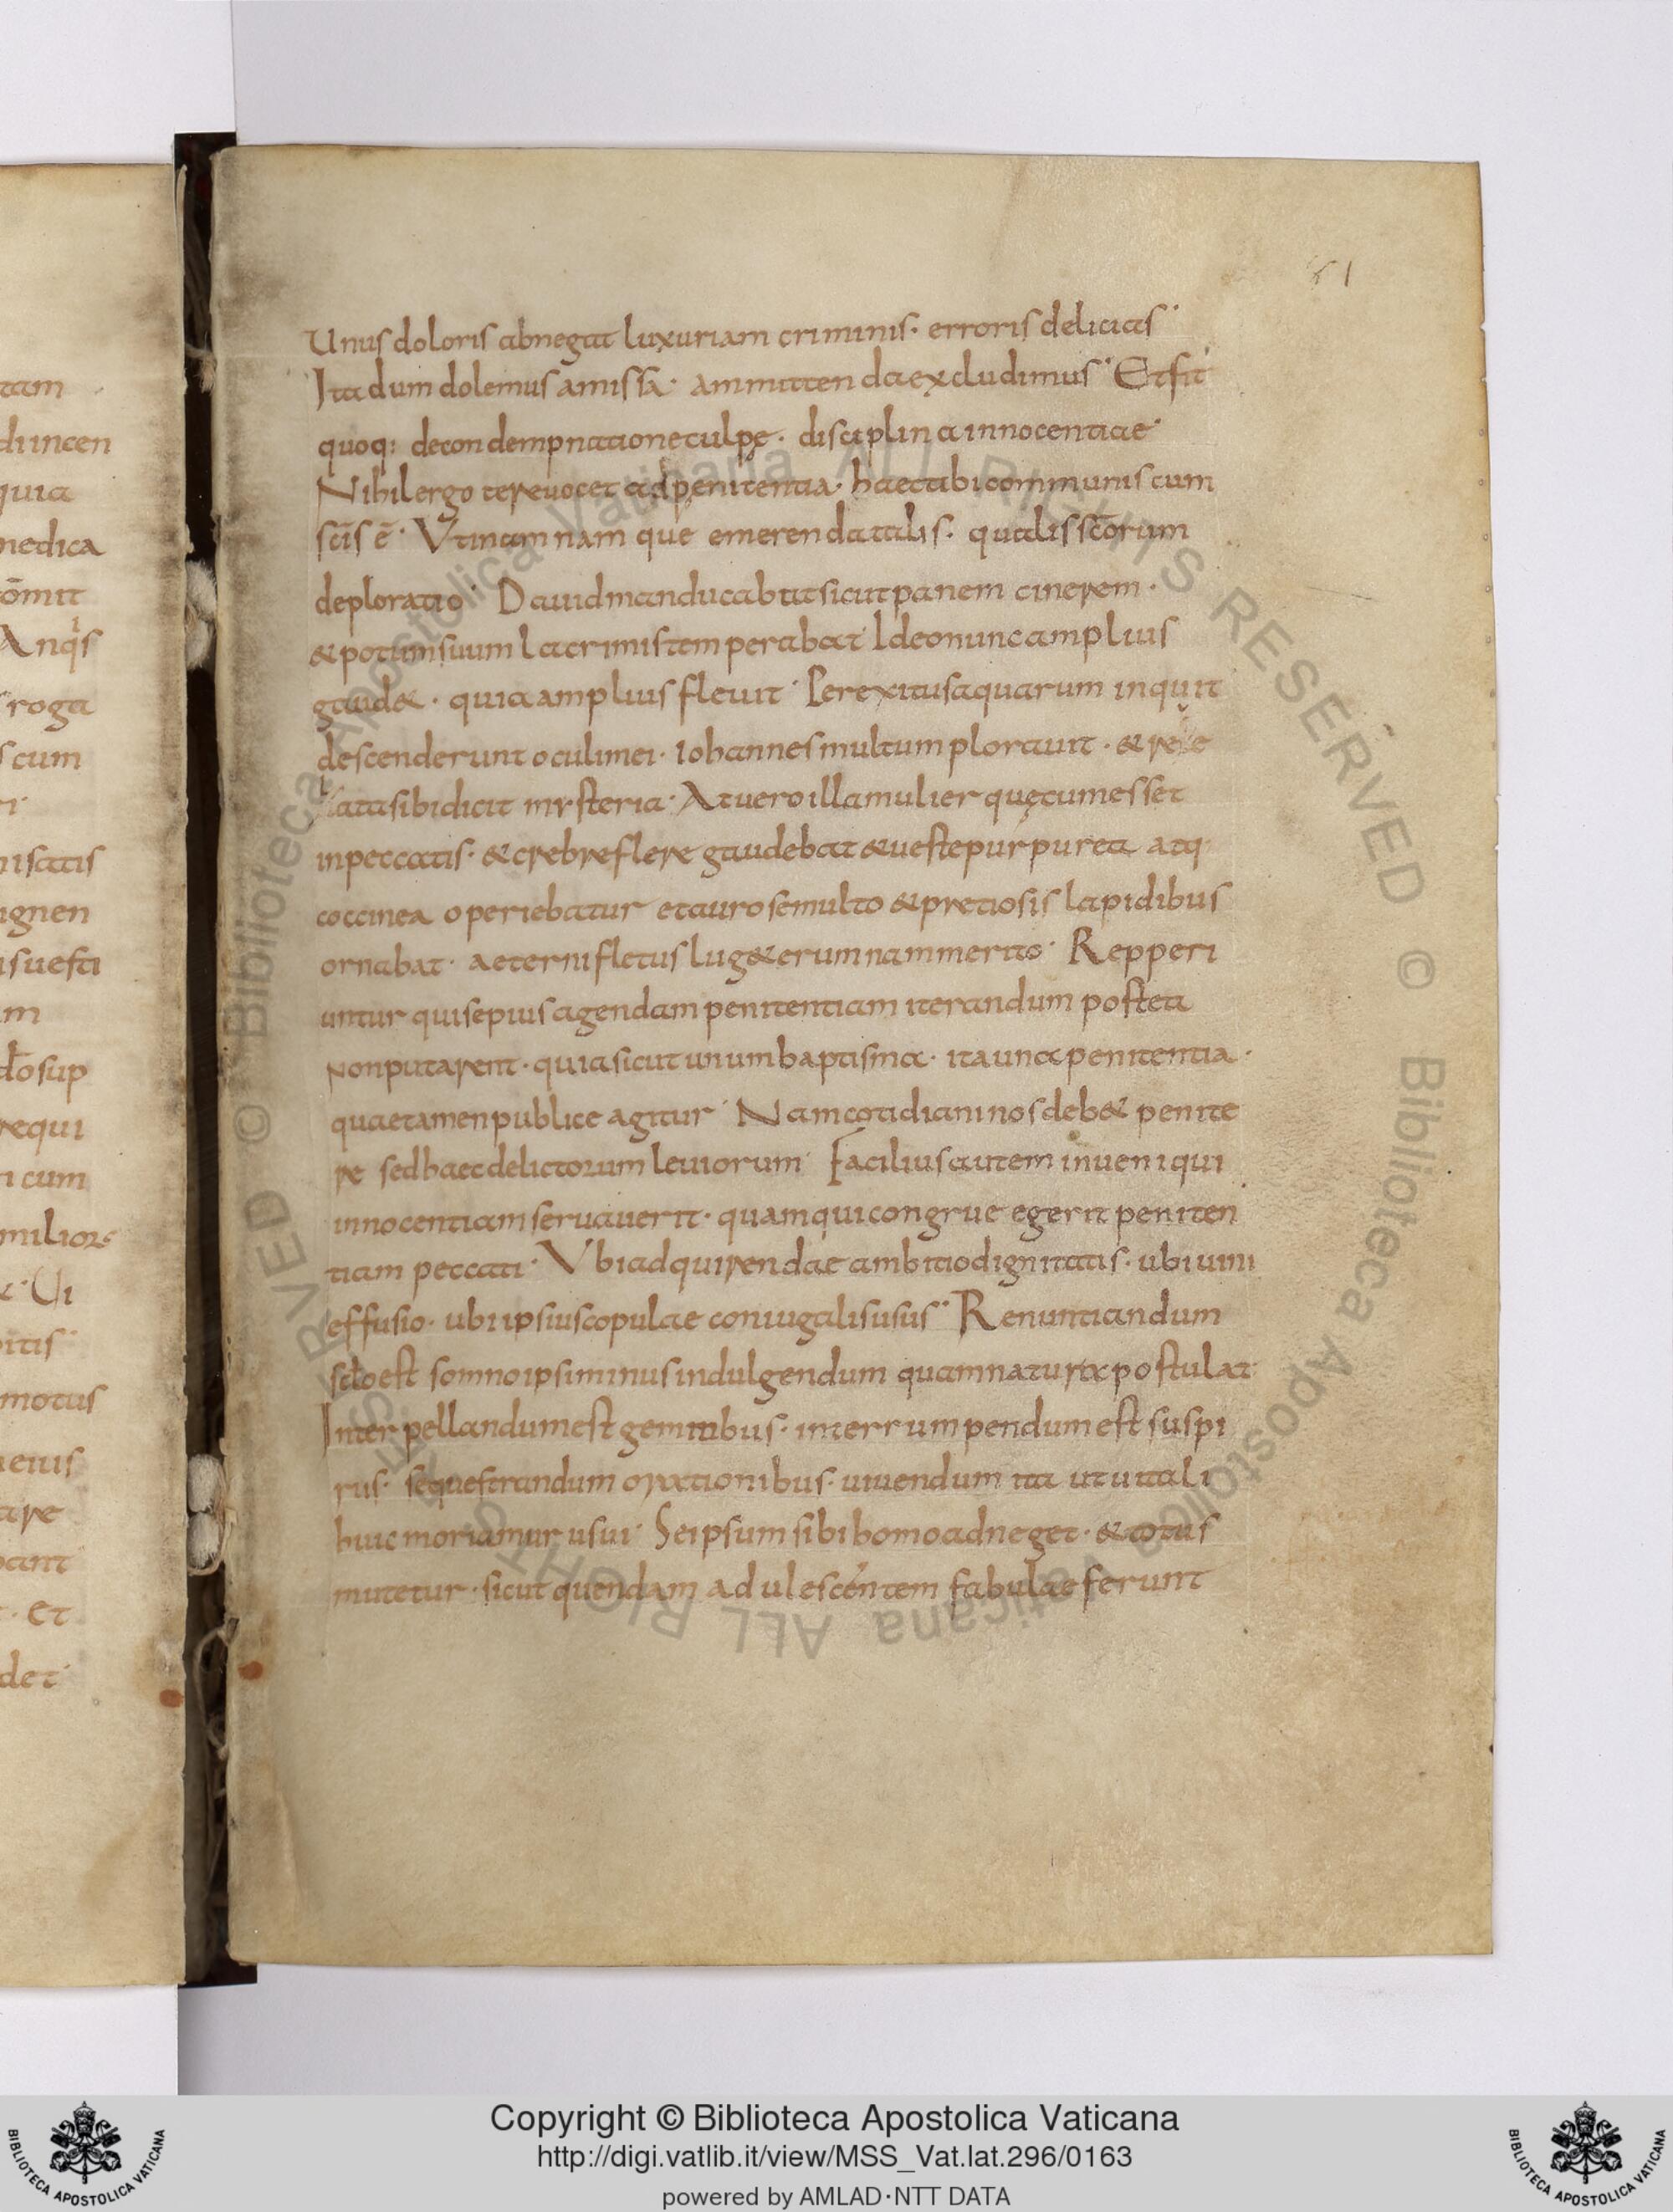 tam
di incen
quia
medica
om̄it
An qis
roga
s cum
ri
nisatis
ignen
isuesti
m
do sup
requi
i cum
miliore
Ui
itis
motus
eius
are
cant
et
det
81
Unus doloris abnegat luxuriam criminis· erroris delicias·
Ita dum dolemus amissa· ammittenda excludimus· Et fit
quoq: de condempnatione culpę· disciplina innocentiae·
Nihil ergo te revocet ad penitentia· haec tibi communis cum
sc̄is ē· Utinam nam que emerenda talis· qualis sc̄orum
deploratio· David manducabat sicut panem cinerem·
& potum suum lacrimis temperabat Ideo nunc amplius
gaud&· quia amplius flevit· Per exitus aquarum inquit
descenderunt oculi mei· Iohannes multum ploravit· & reve
lata sibi dicit mysteria· At vero illa mulier quę cum esset
in peccatis· & crebre flere gaudebat & veste purpurea atq·
coccinea operiebatur et auro se multo & pretiosis lapidibus
ornabat· aeterni fletus lug& erumnam merito· Repperi
untur qui sepius agendam penitentiam iterandum postea
non putarent· quia sicut unum baptisma· ita una penitentia·
quae tamen publice agitur· Nam cotidiani nos deb& penite
re sed haec delictorum leviorum· Facilius autem inveni qui
innocentiam servaverit· quam qui congrue egerit peniten
tiam peccati· Ubi adquirendae ambitio dignitatis· ubi vini
effusio· ubi ipsius copulae coniugalis usus· Renuntiandum
sclo est somno ipsi minus indulgendum quam natura postulat
Interpellandum est gemitibus· interrumpendum est suspi
riis· sequestrandum orationibus· vivendum ita ut vitali
huic moriamur usui· Se ipsum sibi homo adneget· & totus
mutetur· sicut quendam adulescentem fabulae ferunt
Copyright © Biblioteca Apostolica Vaticana
http://digi.vatlib.it/view/MSS_Vat.lat.296/0163
powered by AMLAD·NTT DATA
BIBLIOTECA APOSTOLICA VATICANA
BIBLIOTECA APOSTOLICA VATICANA
© Biblioteca Apostolica Vaticana ALL RIGHTS RESERVED © Biblioteca Apostolica Vaticana ALL RIGHTS RESERVED